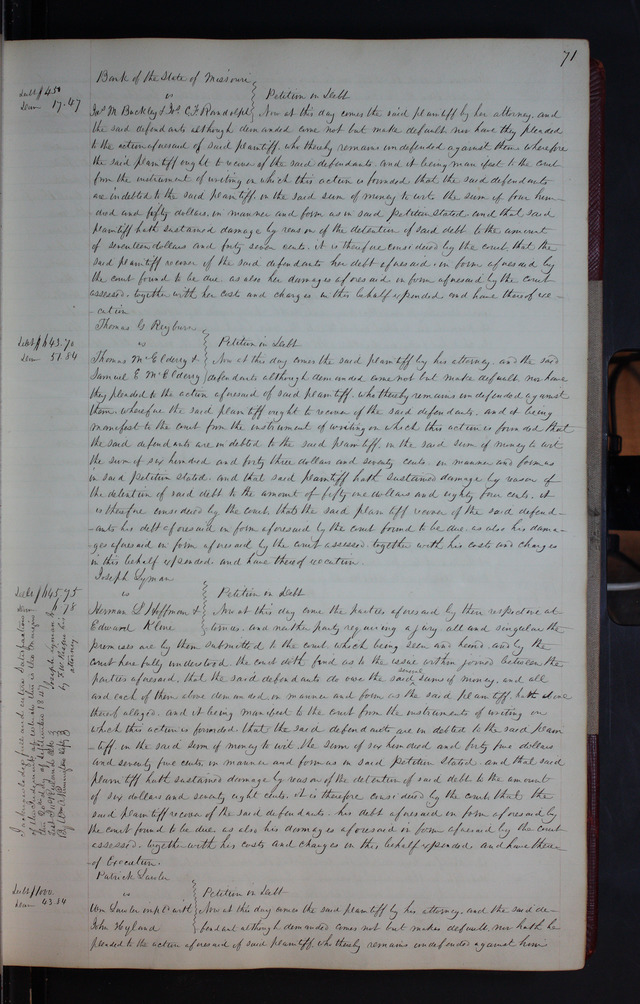 71
Bank of the State of Missouri
Debt $450
Dam 17.47
vs
Petition in Debt
Jas M Buckley & Wm C. F. Randolph
Now at this day comes the said plaintiff by her attorney, and
the said defendants although demanded come not but make default nor have they pleaded
to the action aforesaid of said plaintiff, who thereby remains undefended against them wherefore
the said plaintiff ought to recover of the said defendants, and it being manifest to the court
from the instrument of writing on which this action is founded, that the said defendants
are indebted to the said plaintiff in the said sum of money to wit the sum of four hun-
dred and fifty dollars, in manner and form as in said petition stated, and that said
plaintiff hath sustained damage by reason of the detention of said debt to the amount
of seventeen dollars and forty seven cents. it is therefore considered by the court, that the
said plaintiff recover of the said defendants her debt aforesaid, in form aforesaid by
the court found to be due, as also her damages aforesaid in form aforesaid by the court
assessed, together with her costs and charges in this behalf expended and have thereof exe-
cution
Thomas G Reyburn
Debt $643.70
Dam 51.84
vs
Petition in Debt
Thomas McElderry &
Samuel E McElderry
Now at this day comes the said plaintiff by his attorney, and the said
defendants although demanded come not but make default, nor have
they pleaded to the action aforesaid of said plaintiff, who thereby remains undefended against
them, wherefore the said plaintiff ought to recover of the said defendants, and it being
manifest to the court from the instrument of writing on which this action is founded that
the said defendants are indebted to the said plaintiff in the said sum of money to wit
the sum of six hundred and forty three dollars and seventy cents in manner and form as
in said petition stated, and that said plaintiff hath sustained damage by reason of
the detention of said debt to the amount of fifty one dollars and eighty four cents. it
is therefore considered by the court, that the said plaintiff recover of the said defend-
ants his debt aforesaid in form aforesaid by the court found to be due, as also his dama-
ges aforesaid in form aforesaid by the court assessed, together with his costs and charges
in this behalf expended, and have thereof execution
Joseph Lyman
Debt $645.75
Dam 6.78
vs
Petition in debt
Herman L Hoffman &
Edward Kline
Now at this day come the parties aforesaid by their respective at
tornies, and neither party requiring a jury, all and singular the
premises are by them submitted to the court, which being seen and heard, and by the
court here fully understood, the court doth find as to the issue within joined between the
parties aforesaid, that the said defendants do owe the said several sums of money, and all
and each of them above demanded in manner and form as the said plaintiff, hath above
thereof alleged, and it being manifest to the court from the instruments of writing on
which this action is founded, that the said defendants are indebted to the said plain
tiff in the said sum of money to wit the sum of six hundred and forty five dollars
and seventy five cents, in manner and form as in said petition stated, and that said
plaintiff hath sustained damage by reason of the detention of said debt to the amount
of six dollars and seventy eight cents. it is therefore considered by the court that the
said plaintiff recover of the said defendants his debt aforesaid in form aforesaid by
the court found to be due, as also his damages aforesaid in form aforesaid by the court
assessed, together with his costs and charges in this behalf expended, and have there-
of Execution.
I acknowledge full and entire Satisfaction
of the Judgment opposite this in the margin
Joseph Lyman
by his
attorney
Patrick Lawler
Debt $1000.
Dam 43.84
vs
Petition in Debt
Wm Lawler impld with
John Hyland
Now at this day comes the said plaintiff by his attorney, and the said de-
fendant although demanded comes not but makes default, nor hath he
pleaded to the action aforesaid of said plaintiff, who thereby remains undefended against him